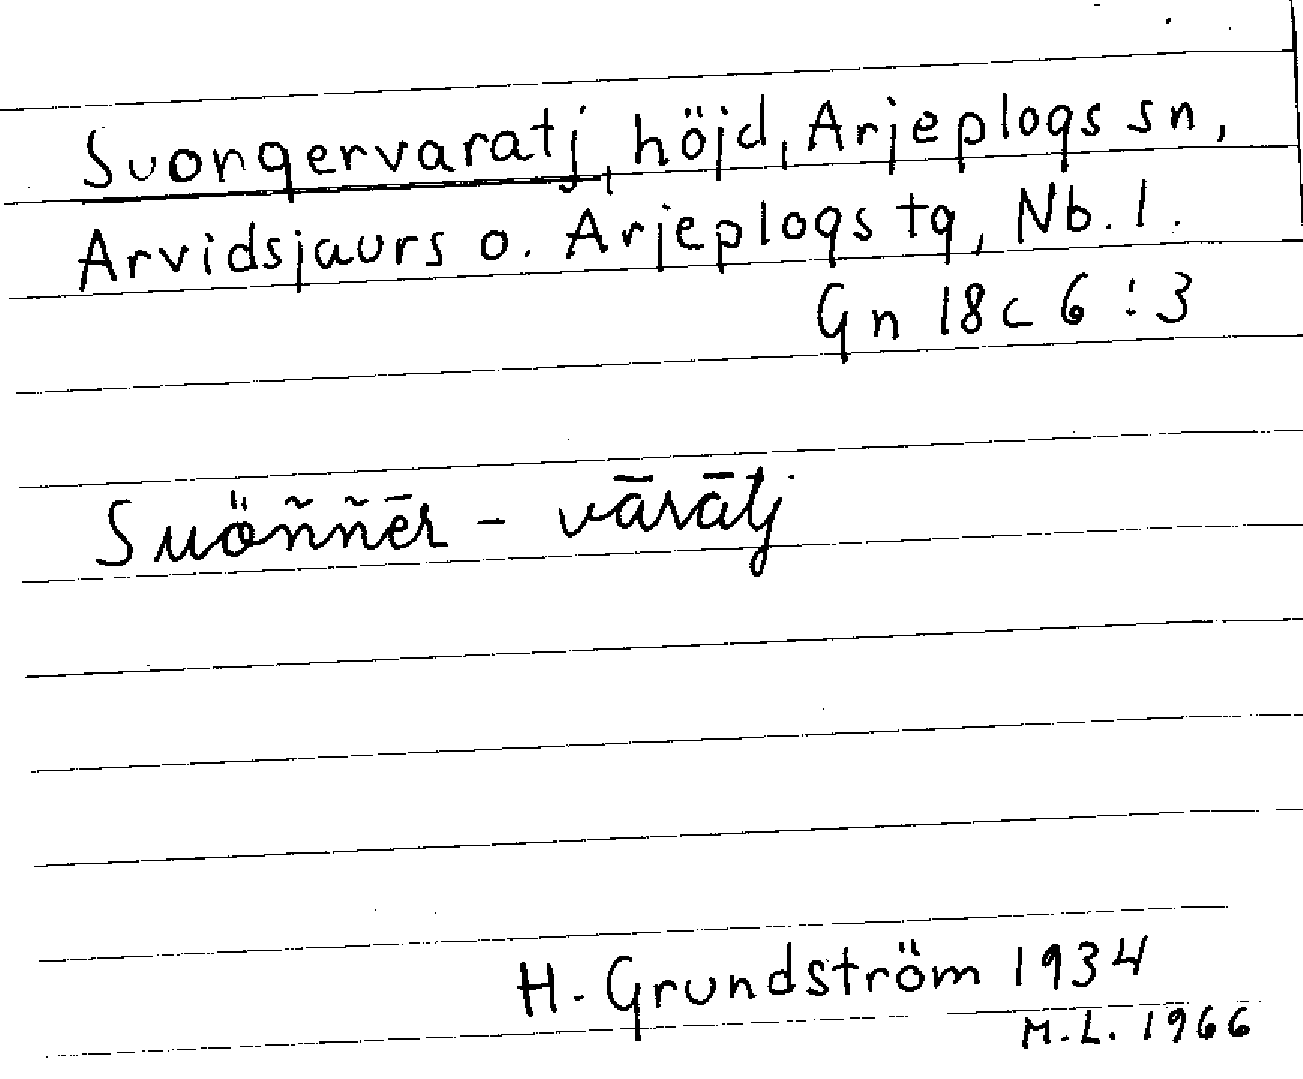 Suongervaratj, höjd, Arjeplogs sn,
Arvidsjaurs o. Arjeplogs tg, Nb. l.
Gn 18c 6:3
Suöññēr - vārātj
H. Grundström 1934
M.L. 1966